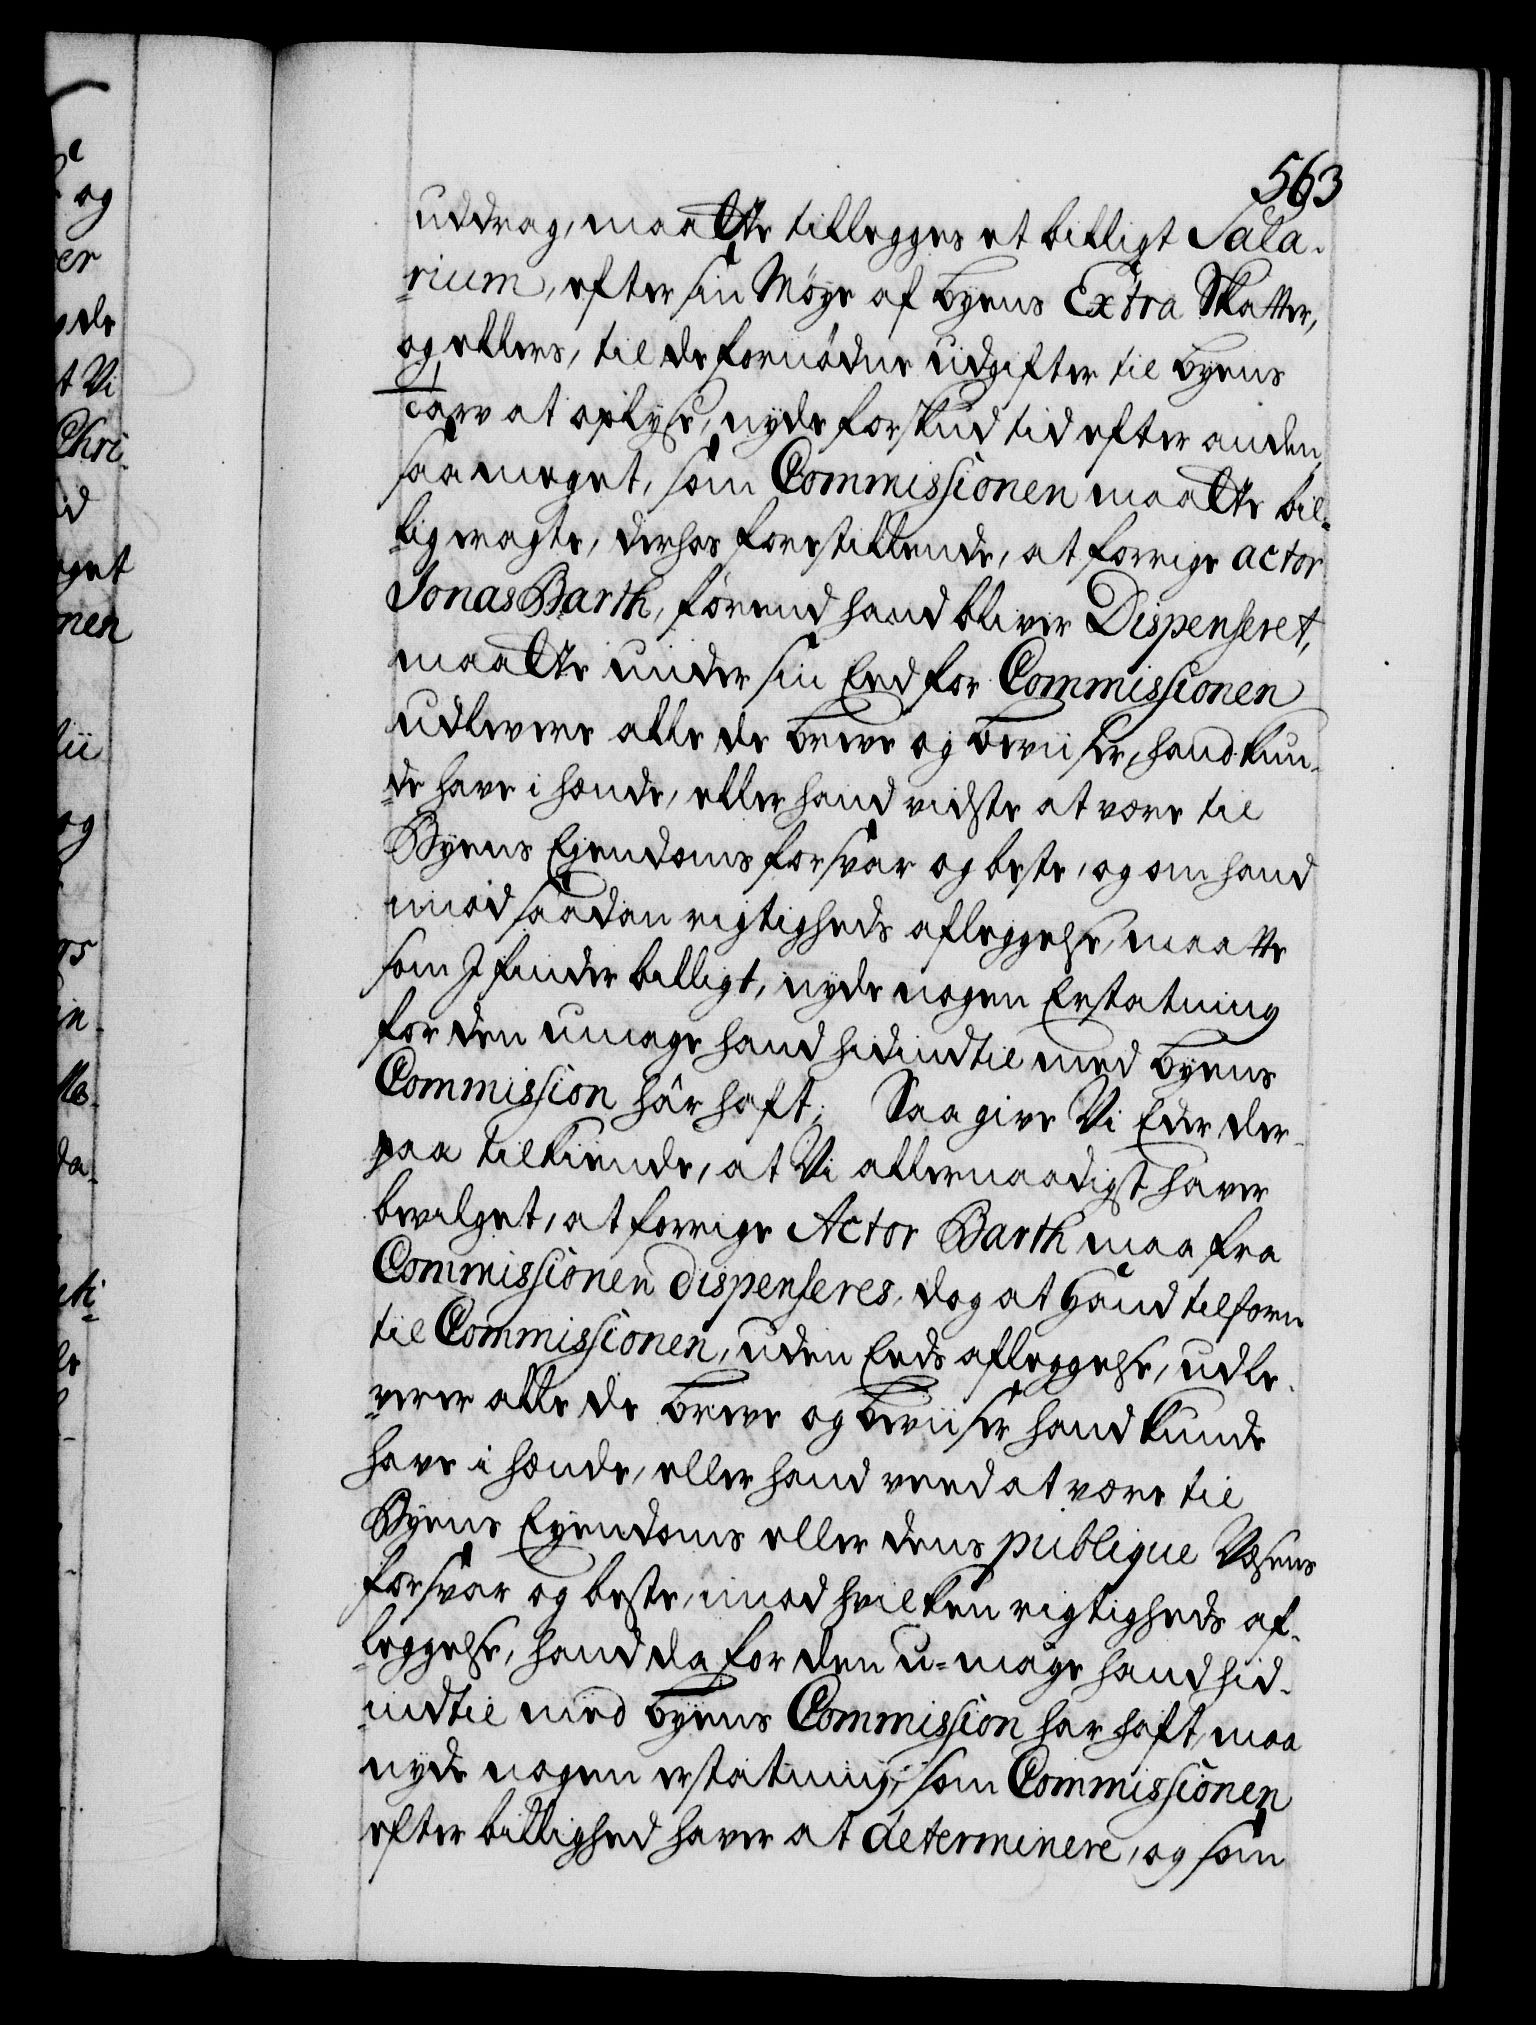 563
uddrag, maatte tillegges et billigt Sala-
rium, efter sin Möye af Byens Extra Skatter,
og ellers, til de fornödne Udgifter til Byens
Tarv at oplyse, nyde forskud tid efter anden,
saa meget, som Commissionen maatte bil-
lig eragte, derhos forestillende, at forrige actor
Jonas Barth, förend hand bliver Dispenseret,
maatte under sin Eed for Commissionen
udlevere alle de breve og beviiser, hand kun-
de have i hænde, eller hand vidste at være til
Byens Ejendoms forsvar og beste, og om hand
imod saadan rigtigheds afleggelse, maatte
som I finder billigt, nyde nogen Erstatning
for den umage hand hidindtil med Byens
Commission har haft; Saa give Vi Eder der-
paa tilkiende, at Vi allernaadigst haver
bevilget, at forrige Actor Barth maa fra
Commissionen dispenseres, dog at Hand tilforn
til Commissionen, uden Eeds afleggelse, udle-
verer alle de breve og beviiser hand kunde
have i hænde, eller hand veed at være til
Byens Eyendoms eller dens publique Væsens
forsvar og beste, imod hvilken rigtigheds af-
leggelse, hand da for den u-mage hand hid-
indtil med byens Commission har haft, maa
nyde nogen erstatning, som Commissionen
efter billighed haver at determinere, og som